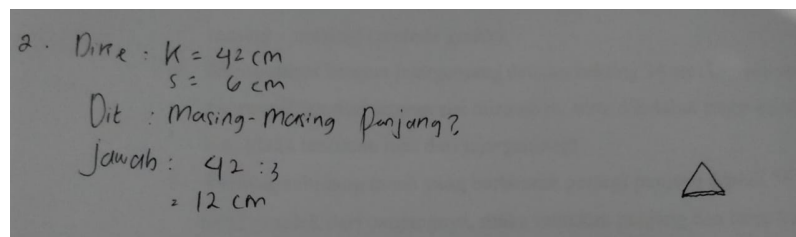 2. Dike : K = 42 cm
S = 6 cm
Dit : Masing-Masing Panjang?
Jawab : 42 : 3
= 12 cm